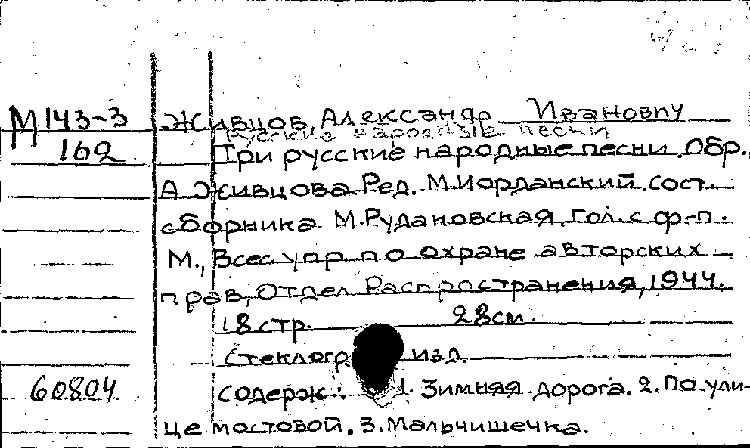 М 143-3 Живцов Александр Иванович
Русские народные песни
162 Три русские народные песни. Обр.
А. Живцова. Ред. М. Иорданский. Сост.
сборника М. Рудановская. Гол. с ф-п.
М., Всес. упр. по охране авторских
прав, Отдел Распространения, 1944.
18 стр. 28 см.
Стеклогр изд.
60804 Содерж.: 1. Зимняя дорога. 2. По ули-
це мостовой. 3. Мальчишечка.